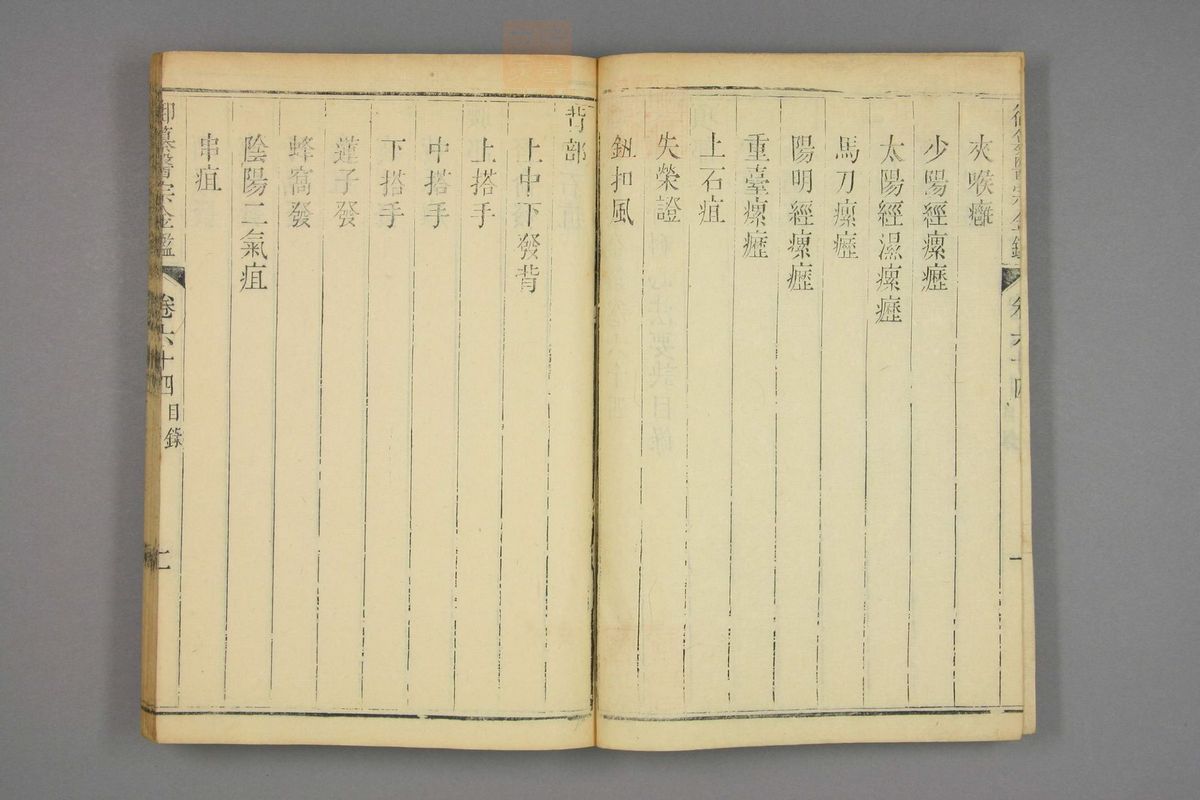 夾喉癰
少陽經瘰癧
太陽經濕瘰癧
馬刀瘰癧
陽明經瘰癧
重臺瘰癧
上石疽
失榮證
鈕扣風
背部
上中下發背
上搭手
中搭手
下搭手
蓮子發
蜂窩發
陰陽二氣疽
串疽
御纂醫宗金鑑
卷六十四
目錄